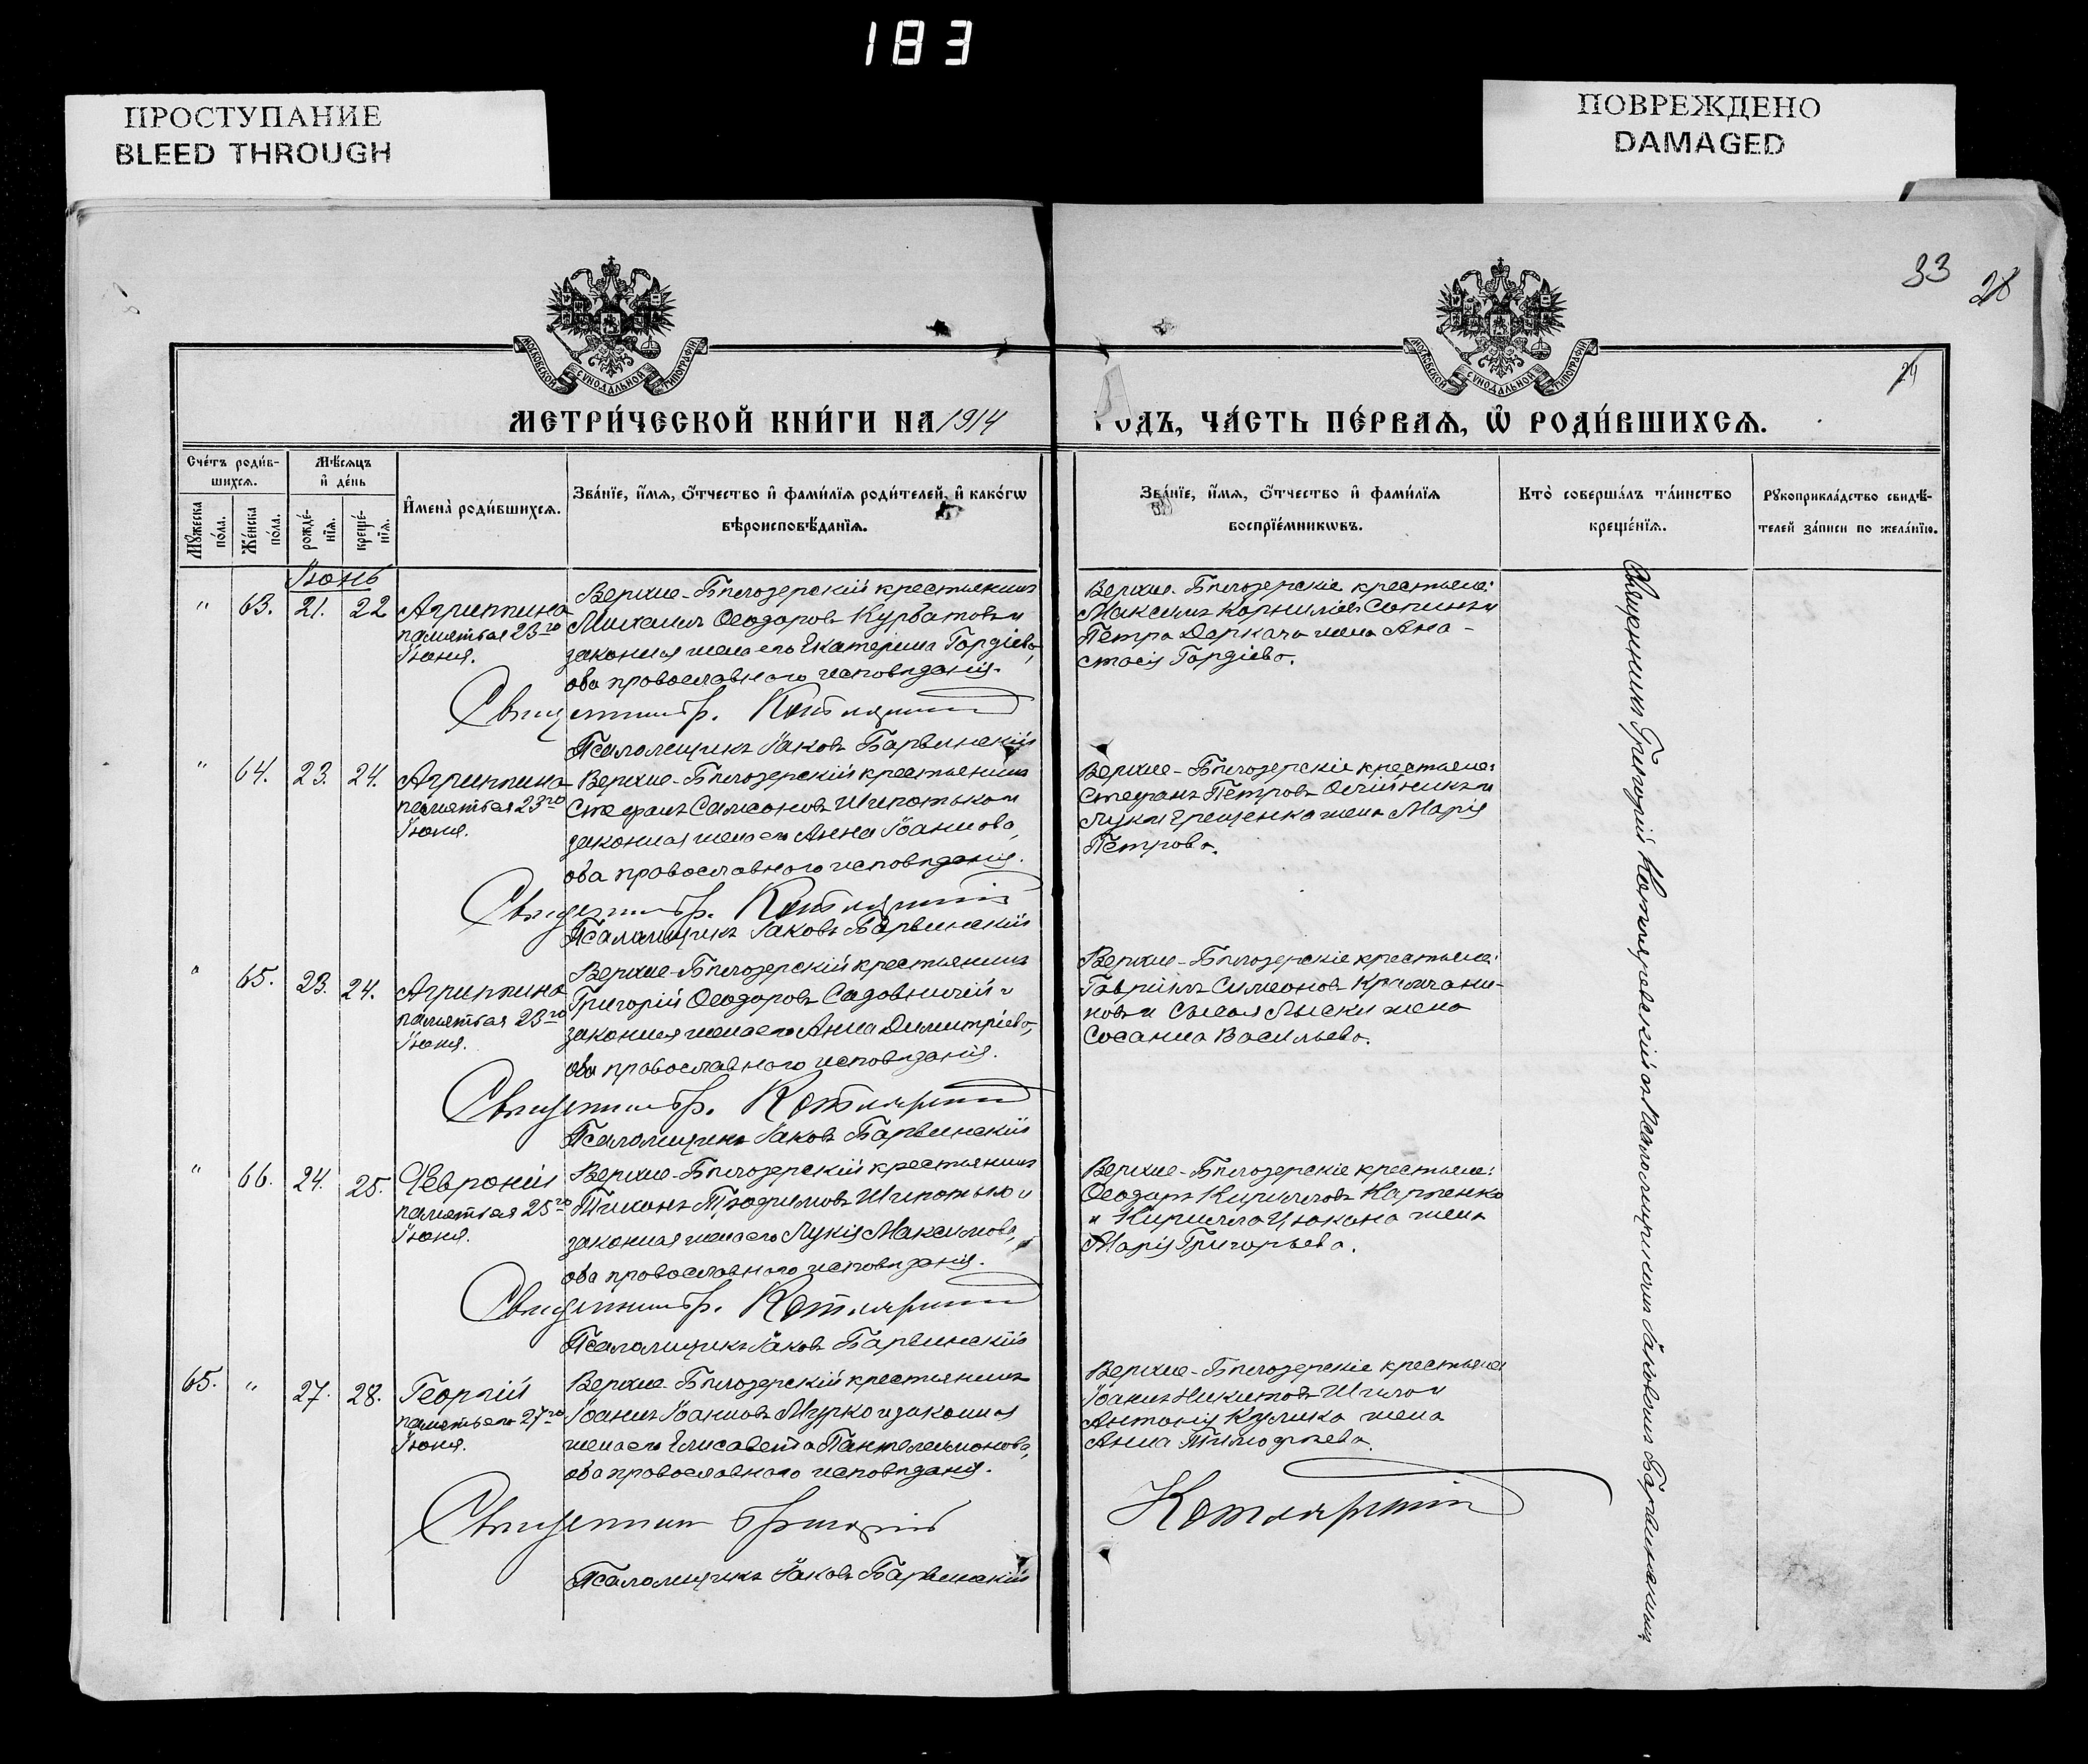 183
ПРОСТУПАНИЕ
BLEED THROUGH
ПОВРЕЖДЕНО
DAMAGED
33
28
МОСКОВСКОЙ СѴНОДАЛЬНОЙ ТИПОГРАФІИ
МОСКОВСКОЙ СѴНОДАЛЬНОЙ ТИПОГРАФІИ
МЕТРИ́ЧЕСКОЙ КНИ́ГИ НА 1914
ГОДЪ, ЧА́СТЬ ПЕ́РВАѦ, Ѡ РОДИ́ВШИХСѦ.
Сче́тъ роди́в-
шихсѧ.
Мꙋ́жеска по́ла.
Же́нска по́ла.
Мѣ́сѧцъ
и҆ де́нь
рожде́-
нїѧ.
креще́-
нїѧ.
И҆мена̀ роди́вшихсѧ.
Зва́нїе, и҆́мѧ, ѻ҆́тчество и҆ фами́лїѧ роди́телей, и҆ како́гѡ
вѣроисповѣ́данїѧ.
Зва́нїе, и҆́мѧ, ѻ҆́тчество и҆ фами́лїѧ
воспрїе́мникѡвъ.
Кто̀ соверша́лъ та́инство
креще́нїѧ.
Рꙋкоприкла́дство свидѣ́-
телей за́писи по жела́нїю.
Іюнь
" 63. 21. 22
Агриппина
память ея 23го
Іюня.
Верхне-Бѣлозерскій крестьянинъ
Михаилъ Ѳеодоровъ Курбатовъ и
законная жена его Екатерина Гордіева,
оба православнаго исповѣданія.
Священникъ Гр. Котляревскій
Псаломщикъ Іаковъ Барвинскій
Верхне-Бѣлозерскіе крестьяне:
Максимъ Корниліевъ Сопинъ и
Петра Деркача жена Ана-
стасія Гордіева.
" 64. 23. 24.
Агриппина
память ея 23го
Іюня.
Верхне-Бѣлозерскій крестьянинъ
Стефанъ Симеоновъ Шипотько и
законная жена его Анна Іоаннова,
оба православнаго исповѣданія.
Священникъ Гр. Котляревскій
Псаломщикъ Іаковъ Барвинскій
Верхне-Бѣлозерскіе крестьяне:
Стефанъ Петровъ Олійникъ и
Луки Грещенка жена Марія
Петрова.
" 65. 23. 24.
Агриппина
память ея 23го
Іюня.
Верхне-Бѣлозерскій крестьянинъ
Григорій Ѳеодоровъ Садовничій и
законная жена его Анна Димитріева,
оба православнаго исповѣданія.
Священникъ Гр. Котляревскій
Псаломщикъ Іаковъ Барвинскій
Верхне-Бѣлозерскіе крестьяне:
Гавріилъ Симеоновъ Крамчани-
новъ и жена
Сосанна Васильева.
" 66. 24. 25.
Ѳевронія
память ея 25го
Іюня.
Верхне-Бѣлозерскій крестьянинъ
Тихонъ Трофимовъ Шипотько и
законная жена его Лукія Максимова,
оба православнаго исповѣданія.
Священникъ Гр. Котляревскій
Псаломщикъ Іаковъ Барвинскій
Верхне-Бѣлозерскіе крестьяне:
Ѳеодоръ Кирилловъ Карпенко
и Кирилла Цюкана жена
Марія Григорьева.
65. " 27. 28.
Георгій
память его 27го
Іюня.
Верхне-Бѣлозерскій крестьянинъ
Іоаннъ Іоанновъ Мурко и законная
жена его Елисавета Пантелеимонова,
оба православнаго исповѣданія.
Священникъ Григорій
Псаломщикъ Іаковъ Барвинскій
Верхне-Бѣлозерскіе крестьяне
Іоаннъ Никитовъ Шило и
Антонія Кулика жена
Анна Тимофѣева.
Котляревскій
Священникъ Григорій Котляревскій съ псаломщикомъ Іаковомъ Барвинскимъ